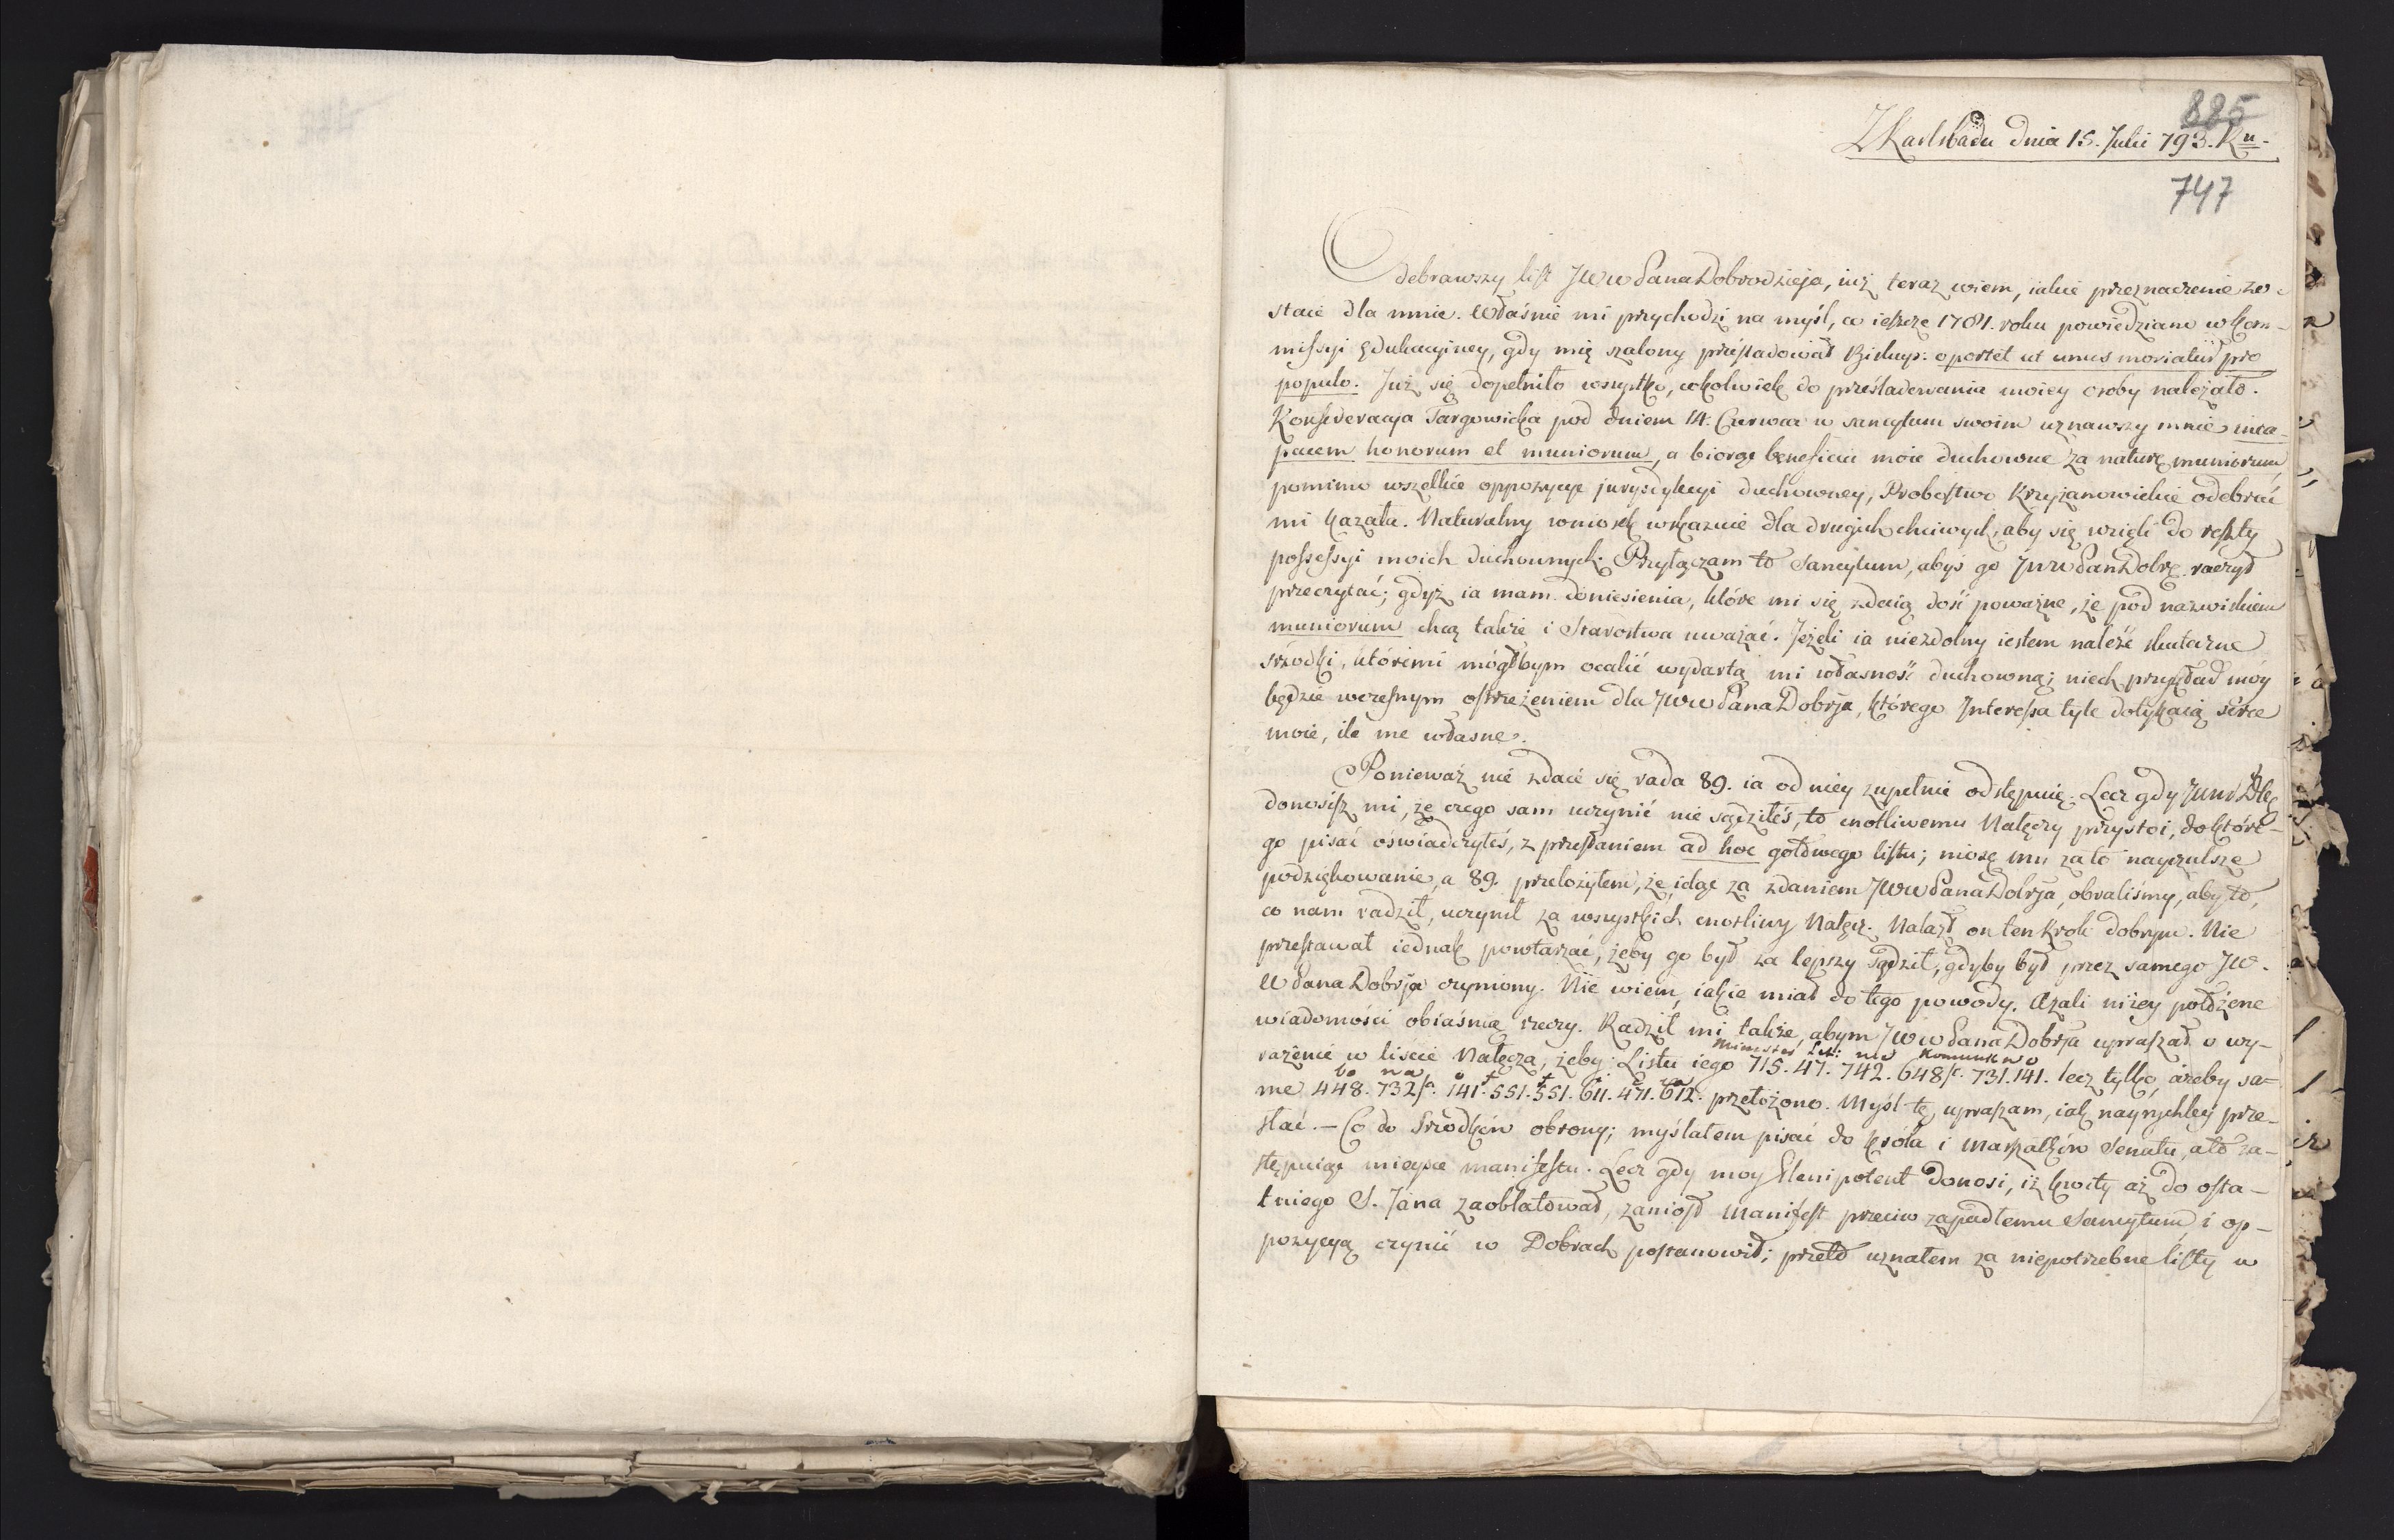 885
Z Karlsbadu dnia 15. Julii 793. Ru.
747
Odebrawszy list JWWPana Dobrodzieja, już teraz wiem, iakie przeznaczenie zo-
staie dla mnie. Właśnie mi przychodzi na myśl, co ieszcze 1781. roku powiedziano w Kom-
missyi Edukacyiney, gdy mię szalony prześladował Biskup: oportet ut unus moriatur pro
populo. Już się dopełniło wszystko, cokolwiek do prześladowania moiey osoby należało.
Konfederacya Targowicka pod dniem 14. Czerwca w sancytum swoim uznawszy mnie inca-
pacem honorum et muniorum, a biorąc beneficia moie duchowne za naturę muniorum,
pomimo wszelkie oppozycye jurysdykcyi duchowney, Probostwo Krzyżanowickie odebrać
mi kazała. Naturalny wniosek wskazuie dla drugich chciwych, aby się wzięli do reszty
possessyi moich duchownych. Przyłączam to Sancytum, abyś go JWWPan Dobr. raczył
przeczytać; gdyż ia mam doniesienia, które mi się zdaią dość poważne, że pod nazwiskiem
muniorum chcą także i Starostwa uważać. Jeżeli ia niezdolny iestem naleźć skuteczne
srzodki, któremi mógłbym ocalić wydartą mi własność duchowną; niech przykład móy
będzie wczesnym ostrzeżeniem dla JWWPana Dobrja, którego Interessa tyle dotykaią serce
moie, ile me własne.
Ponieważ nie zdaie się rada 89. ia od niey zupełnie odstępuię. Lecz gdy JWWPDbr
donosisz mi, że czego sam uczynić nie sądziłeś, to cnotliwemu Nałęczy przystoi, do które-
go pisać oświadczyłeś, z przesłaniem ad hoc gotowego listu; niosę mu za to nayczulsze
podziękowanie, a 89. przełożyłem, że idąc za zdaniem JWWPana Dobrja, obraliśmy, aby to,
co nam radził, uczynił za wszystkich cnotliwy Nałęcz. Nalazł on ten krok dobrym. Nie
przestawał iednak powtarzać, żeby go był za lepszy sądził, gdyby był przez samego JW.
WPana Dobrja czyniony. Nie wiem, iakie miał do tego powody. Azali niżey położone
wiadomości obiaśnią rzeczy. Radził mi także, abym JWWPana Dobrja upraszał o wy-
rażenie w liście Nałęcza, żeby Listu iego 715. 47. 742. 648. 731. 141. lecz tylko, ażeby sa-
me 448. 732. 141. 551. 551. 611. 471. 612. przełożono. Myśl tę upraszam, iak nayrychley prze-
słać. — Co do srzodków obrony; myślałem pisać do Króla i Marszałków Senatu, a to za-
stępuiąc mieysce manifestu. Lecz gdy moy Plenipotent donosi, iż kwity aż do osta-
tniego S. Jana zaoblatował, zaniosł manifest przeciw zapadłemu Sancytum, i op-
pozycyą czynić w Dobrach postanowił; przeto uznałem za niepotrzebne listy w